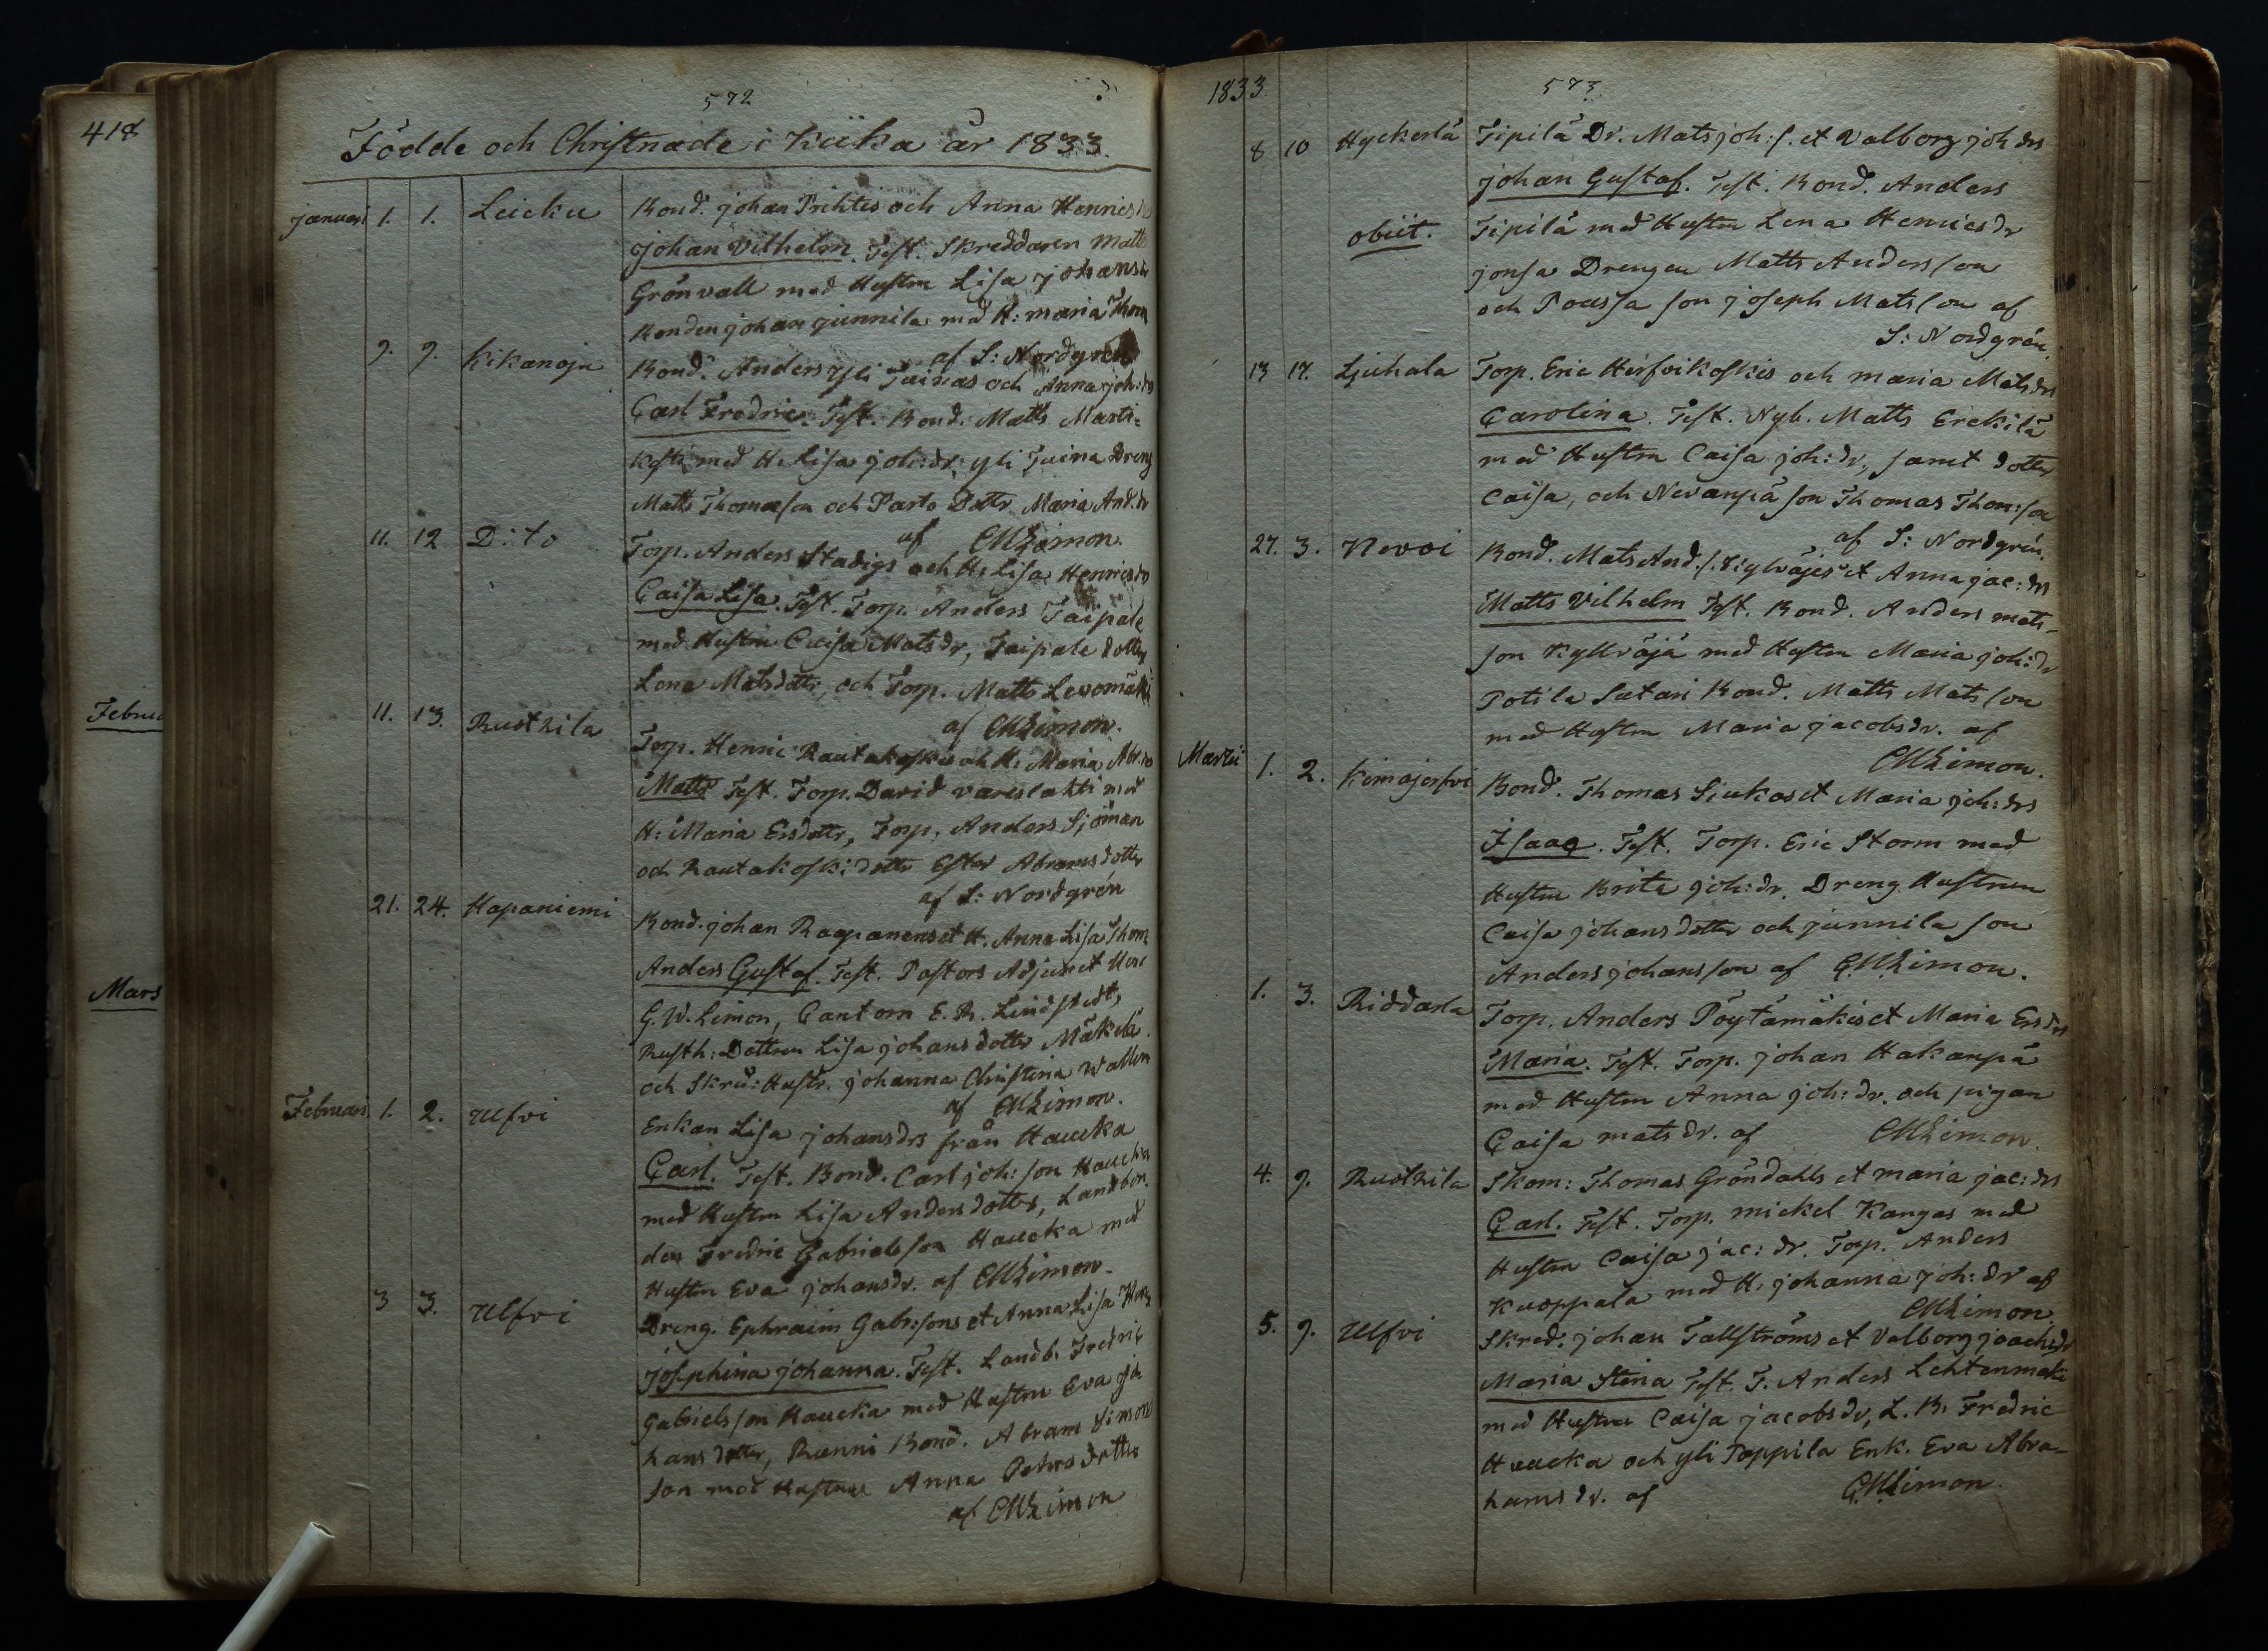 418
Februa
Mars
572
Födde och Christnade i Kiika år 1833.
januari 1. 1. Leicku Bond. johan Prihtis och Anna Henricsdrs
johan Vilhelm. Test. Skreddaren Matts
Grönvall med Hustru Lisa johansdr
Bonden johan junnila med H: maria Thom
af S: Nordgrén
9. 9. Kikanoju Bond. Anders yli Tuinas och Anna joh:drs
Carl Fredric. Test. Bond. Matts Marti-
kosti med H. Lisa joh:dr, yli Tuina Dreng
Matts Thomasson och Parto Dottr. Maria And.dr
af GWLimon.
11. 12 Dito Torp. Anders Stadigs och H. Lisa Henricsdrs
Caisa Lisa. Test. Torp. Anders Taipale
med Hustru Caisa Matsdr, Taipale dotter
Lena Matsdotter, och Torp. Matts Levomäki
af GWLimon.
11. 13. Rustkila Torp. Henric Rautakoskis och H. Maria Abr.drs
Matts Test. Torp. David vareslahti med
H: Maria Ersdottr, Torp. Anders Sjöman
och Rautakoski dottr Ester Abramsdotter
af S: Nordgrén
21. 24. Hapaniemi Bond. johan Raapanens et H. Anna Lisa Thom:
Anders Gustaf. Test. Pastors Adjunct Herr
G.W.Limon, Cantorn E. R. Lindstedt,
Rusth: Dottren Lisa johansdotter Mäkelä
och Skrd: Hustr. johanna Christina Wallen
af GWLimon.
Februari 1. 2. Ulfvi Enkan Lisa johansdrs från Haucka
Carl. Test. Bond. Carl joh:son Haucka
med Hustru Lisa Andersdotter, Landbon-
den Fredric Gabrielsson Haucka med
Hustru Eva johansdr. af GWLimon.
3 3. Ulfvi Dreng. Ephraim Gabr:sons et Anna Lisa
josephina johanna. Test. Landb. Fredric
Gabrielsson Haucka med Hustru Eva jo-
hansdotter, Runni Bond. Abram Simon
son med Hustru Anna Petersdotter
af GWLimon
1833
573
8 10 Hyckerlä Tipilä Dr. Mats joh:s. et Valborg joh drs
johan Gustaf. Test. Bond. Anders
obiit. Tipilä med Hustru Lena Henricsdr
jonsa Drengen Matts Andersson
och Poussa son joseph Matsson af
S: Nordgrén.
13 17. Ljuhala Torp. Eric Hirfvikoskis och maria Matsdrs
Carolina. Test. Nyb. Matts Erckilä
med Hustru Caisa joh:dr, samt dotter
Caisa, och Nevanpä son Thomas Thom:son
af S: Nordgrén.
27. 3. Novoi Bond. Mats And.s. Kylväjes et Anna jac:drs
Matts Vilhelm Test. Bond. Anders mats-
son Kyllväjä med Hustru Maria joh:dr
Potila Sutari Bond. Matts Matsson
med Hustru Maria jacobsdr. af
GWLimon.
Martii 1. 2. Kimajerfvi Bond. Thomas Siukos et Maria joh:drs
Isaac. Test. Torp. Eric Storm med
Hustru Brita joh:dr. Dreng Hustrun
Caisa johansdotter och junnila son
Anders johansson af GWLimon.
1. 3. Riddarla Torp. Anders Pöytämäkis et Maria Ersdrs
Maria. Test. Torp. johan Hakanpä
med Hustru Anna joh:dr. och pigan
Caisa matsdr. af GWLimon.
4. 9. Rustkila Skom: Thomas Gröndahls et maria jac:drs
Carl. Test. Torp. mickel Kangas med
Hustru Caisa jac:dr. Torp. Anders
Kuoppala med H. johanna joh:dr af
GWLimon.
5. 9. Ulfvi Skred. johan Tallströms et Valborg joach:dr
Maria Stina Test. T. Anders Lehtenmäki
med Hustru Caisa jacobsdr, L. B. Fredric
Haucka och yli Poppila Enk. Eva Abra-
hamsdr. af GWLimon.